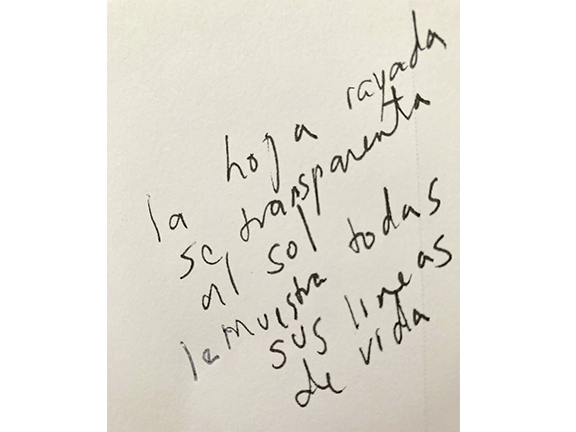 la hoja rayada
se transparenta
al sol
le muestra todas
sus lineas
de vida